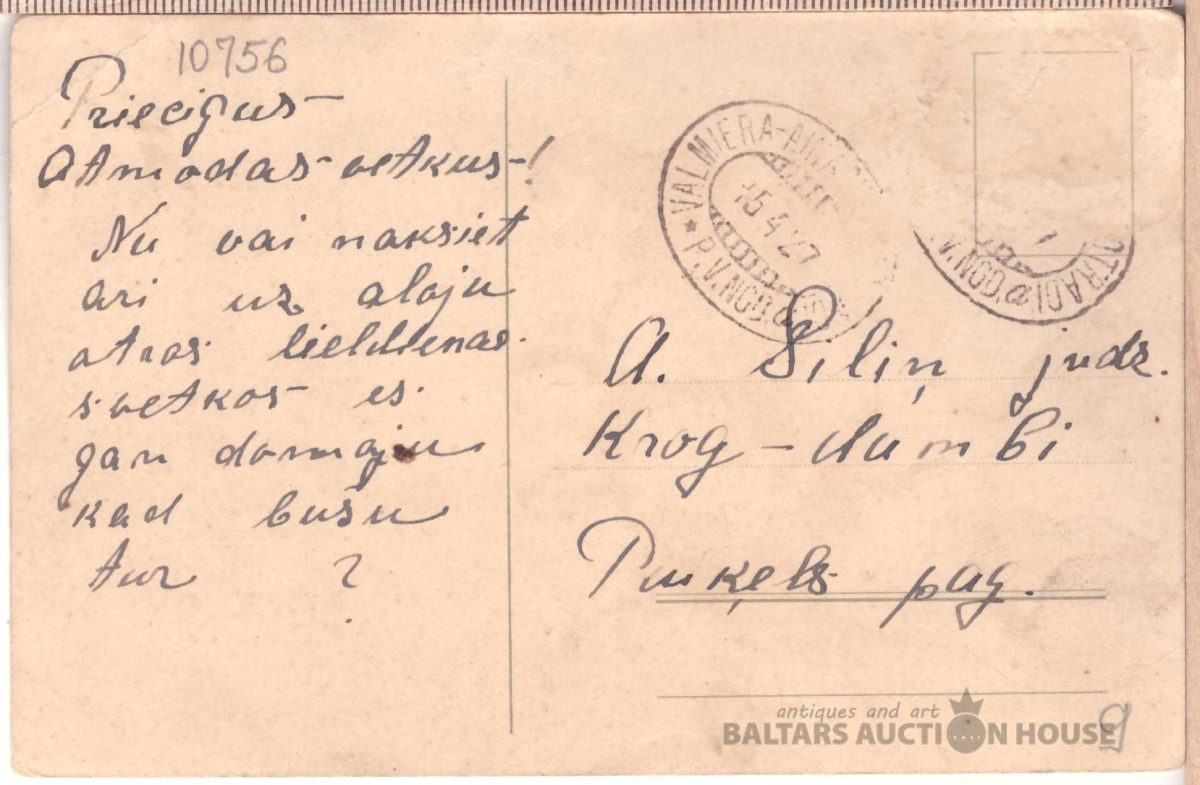 10756
Priecigus
Atmodas-svetkus-!
Nu vai naksiet
ari uz aloju
otros lieldienas.
svetkos es.
gan domaju
kad bušu
tur ?
VALMIERA-AINA
15 4 27
P.V.NOD.
V.NOD.
A. Siliņ judz.
Krog-dambi
Puiķels pag.
antiques and art
BALTARS AUCTION HOUSE
9